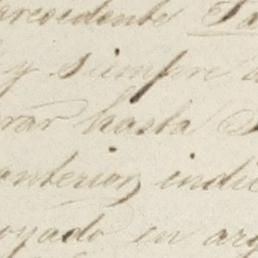 precedente
y siempre
rar hasta
anterior, indi
oyado en arg